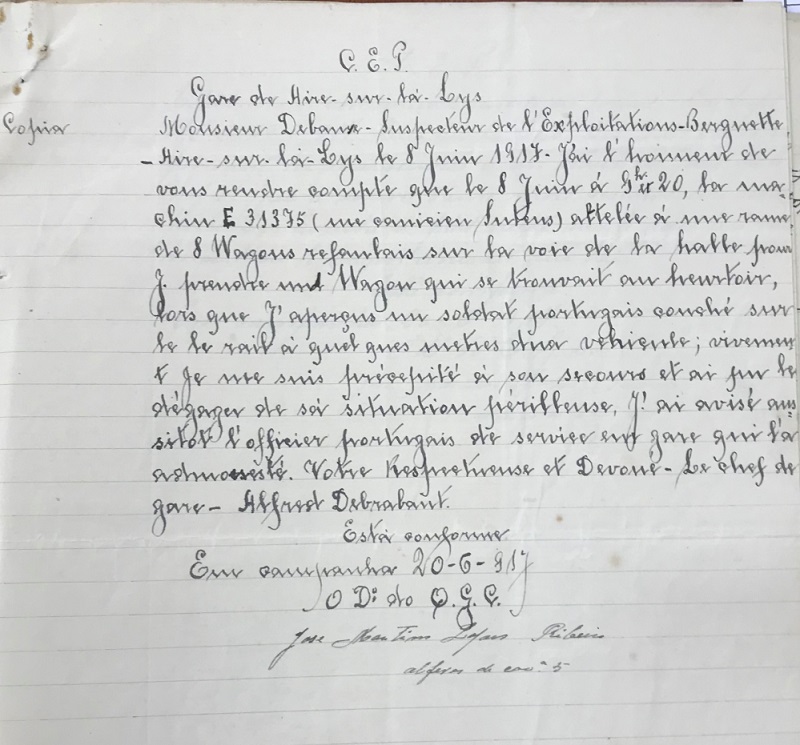 C. E. P.
Gare de Aire-sur-la-Lys
Copia
Monsieur Debaux-Inspecteur de l'Exploitations-Berguette,
-Aire-sur-là-Lys le 8 Juin 1917- J'ai l'hoiment de
vous rendre compte que le 8 Juin á 9hr 20, la ma-
chin E 31375 (me canicien Duteus) attelée á une rame
de 8 Wagons refoulais sur la voie de la halle pour
J. prendre un Wagon qui se trouvait au heurtoir,
lors que J'aperçus un soldat portugais couché sur
le le rail á quélques metres dua vehicule; vivemen
t je me suis précepité á son secours et ai pu le
dégager de sá situation périlleuse, J'ai avisé aus=
sitot l'officier portugais de service em gare qui l'á
admonesté. Votre Respectueuse et Devoué- Le chef de
gare- Alfred Debrabant.
Está conforme
Em campanha 20-6-917
O D: do Q. G. C.
José Martins Lopes Ribeiro
alferes de cavª 5